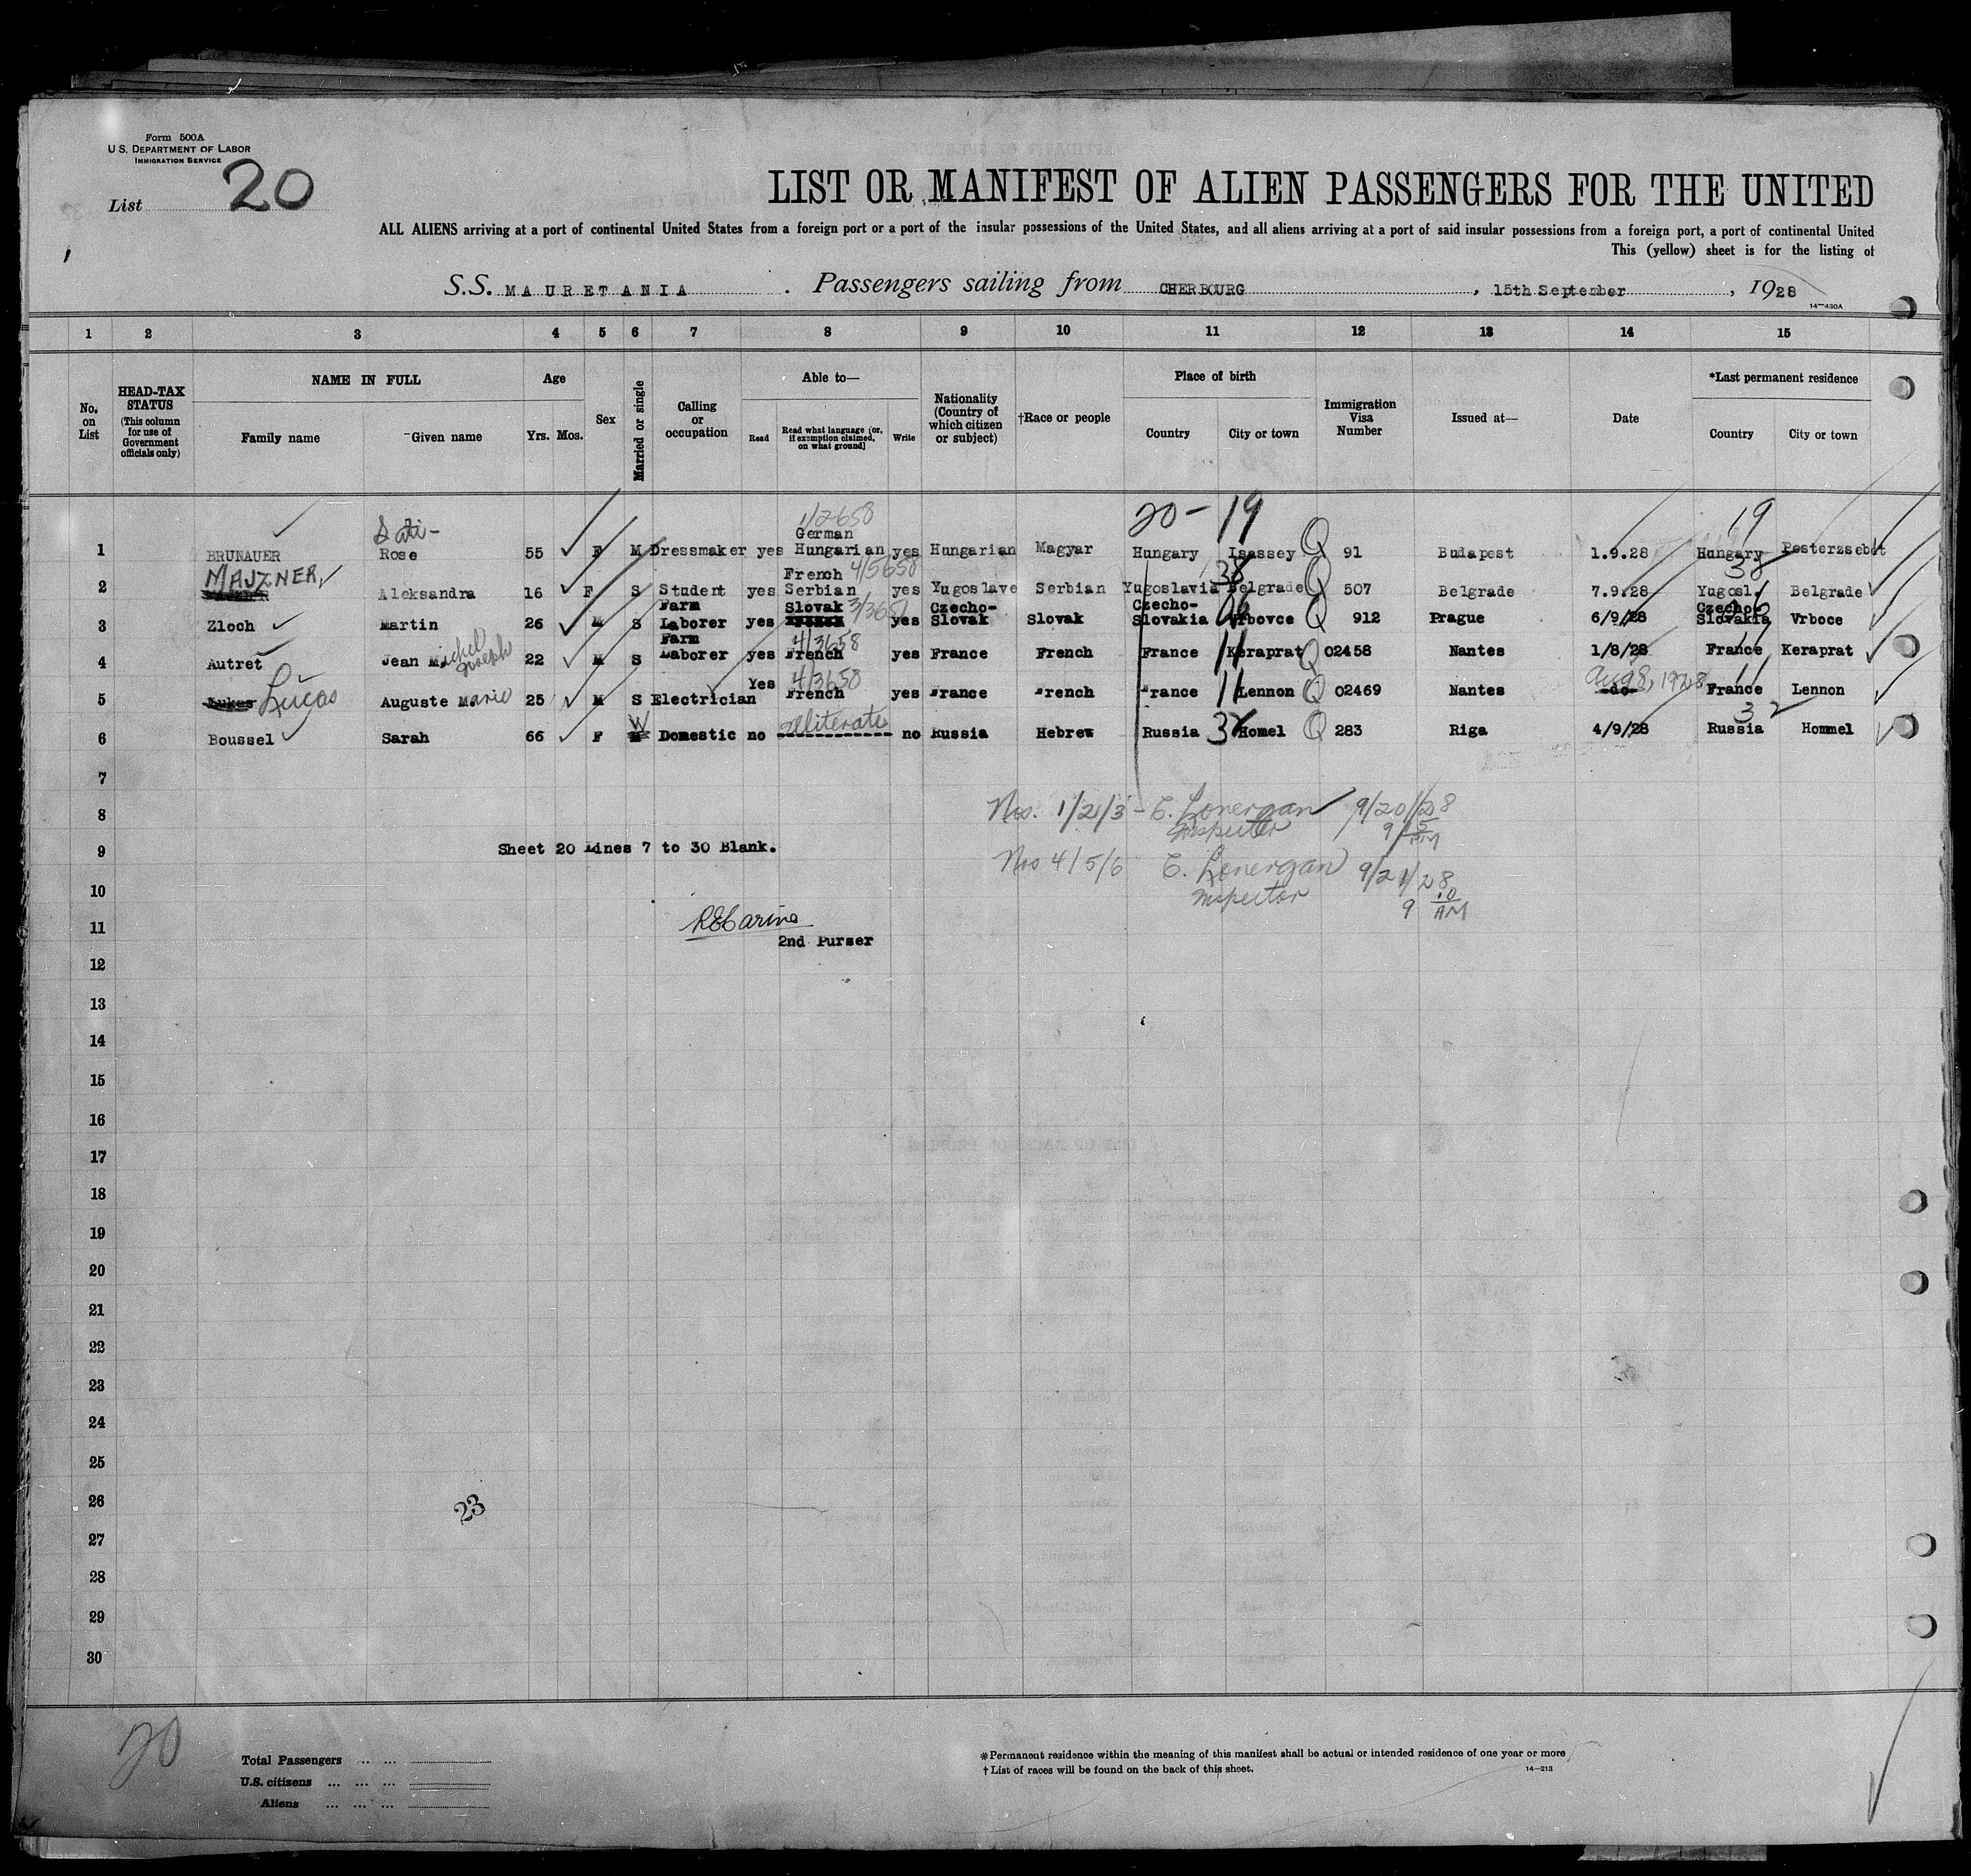 Form 500A
U.S. DEPARTMENT OF LABOR
IMMIGRATION SERVICE
List 20
LIST OR MANIFEST OF ALIEN PASSENGERS FOR THE UNITED
ALL ALIENS arriving at a port of continental United States from a foreign port or a port of the insular possessions of the United States, and all aliens arriving at a port of said insular possessions from a foreign port, a port of continental United
This (yellow) sheet is for the listing of
S.S. MAURETANIA . Passengers sailing from CHERBOURG , 15th September , 1928
14—430A
1 2 3 4 5 6 7 8 9 10 11 12 13 14 15
No. on List
HEAD-TAX STATUS (This column for use of Government officials only)
NAME IN FULL Family name Given name
Age Yrs. Mos.
Sex
Married or single
Calling or occupation
Able to— Read Read what language [or, if exemption claimed, on what ground] Write
Nationality (Country of which citizen or subject)
†Race or people
Place of birth Country City or town
Immigration Visa Number
Issued at—
Date
*Last permanent residence Country City or town
20 - 19 19
1/2658
German
1 BRUNAUER Rose 55 F M Dressmaker yes Hungarian yes Hungarian Magyar Hungary Isassey Q 91 Budapest 1.9.28 Hungary Pesterzsebet
French 4/5658 38 38
2 MAJZNER, Aleksandra 16 F S Student yes Serbian yes Yugoslave Serbian Yugoslavia Belgrade Q 507 Belgrade 7.9.28 Yugosl. Belgrade
Farm Slovak Czecho- Czecho- Czecho-
3 Zloch Martin 26 M S Laborer yes yes Slovak Slovak Slovakia Vrbovce Q 912 Prague 6/9/28 Slovakia Vrboce
Farm 4/3658 11 11
4 Autret Jean Michel Joseph 22 M S Laborer yes French yes France French France Keraprat Q 02458 Nantes 1/8/28 France Keraprat
Yes 4/3658 11 Aug 8, 1928 11
5 Lukas Lucas Auguste Marie 25 M S Electrician French yes France French France Lennon Q 02469 Nantes -do- France Lennon
illiterate W 32 32
6 Boussel Sarah 66 F M Domestic no ------------ no Russia Hebrew Russia Homel Q 283 Riga 4/9/28 Russia Hommel
7
8 Nos. 1/2/3 - E. Lonergan Inspector 9/20/28 9 15 PM
9 Sheet 20 Lines 7 to 30 Blank.
Nos 4/5/6 E. Lonergan Inspector 9/21/28 9 10 AM
10
11
2nd Purser
12
13
14
15
16
17
18
19
20
21
22
23
24
25
26
23
27
28
29
30
20
Total Passengers ... ...
U.S. citizens ... ... ...
Aliens ... ... ...
*Permanent residence within the meaning of this manifest shall be actual or intended residence of one year or more
†List of races will be found on the back of this sheet.
14—213